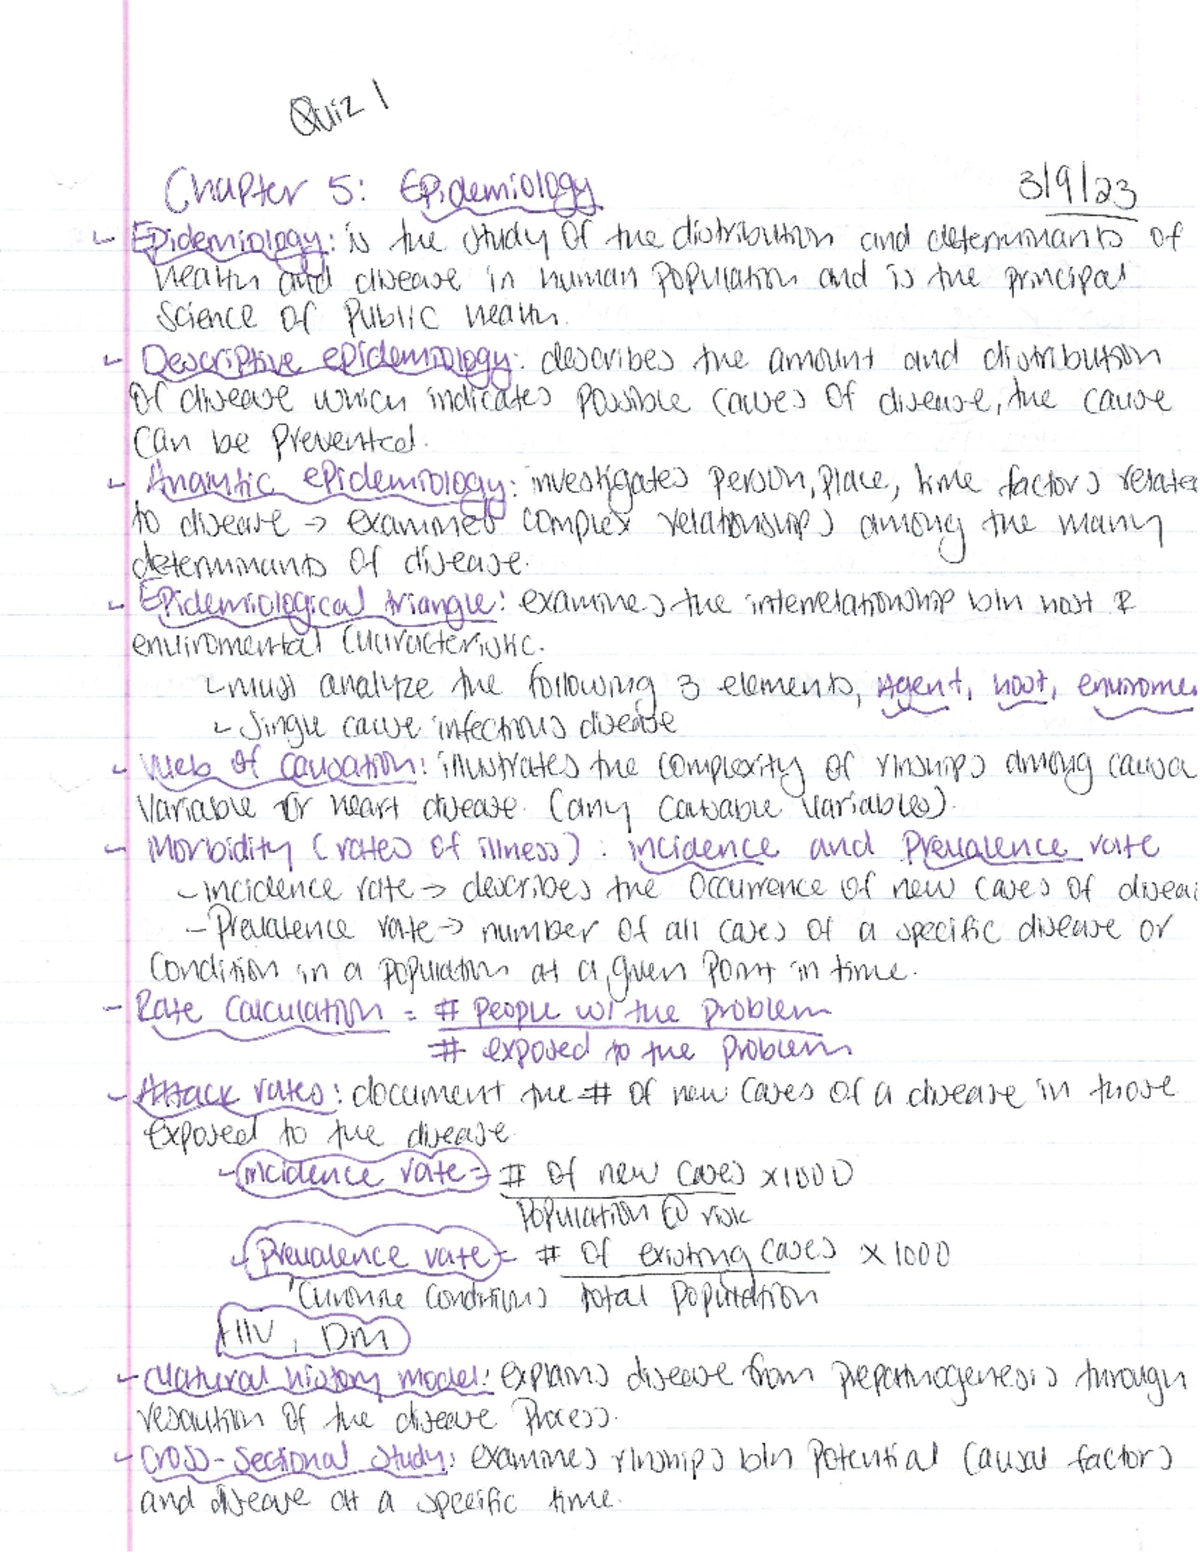 Quiz 1
Chapter 5: Epidemiology 3/9/23
- Epidemiology: is the study of the distribution and determinants of
health and disease in human population and is the principal
science of public health.
- Descriptive epidemiology: describes the amount and distribution
of disease which indicates possible causes of disease, the cause
can be prevented.
- Analytic epidemiology: investigates person, place, time factors relate
to disease → examines complex relationships among the many
determinants of disease.
- Epidemiological triangle: examines the interrelationship b/n host &
enviromental characteristic.
- must analyze the following 3 elements, Agent, host, envirome
- Single cause infectious disease
- Web of causation: illustrates the complexity of r/nships among causa
variable for heart disease. (any causable variables).
- Morbidity (rates of illness): incidence and Prevalence rate
- incidence rate → describes the occurrence of new cases of diseas
- Prevalence rate → number of all cases of a specific disease or
condition in a population at a given point in time.
- Rate calculation = # people w/ the problem
# exposed to the problem
- Attack rates: document the # of new cases of a disease in those
exposed to the disease.
- incidence rate = # of new cases x1000
population @ risk
- Prevalence rate = # of existing cases x 1000
conditions total population
HIV, DM
- Natural history model: explains disease from prepathogenesis through
resolution of the disease process.
- Cross-Sectional Study: examines r/nships b/n potential causal factors
and disease at a specific time.